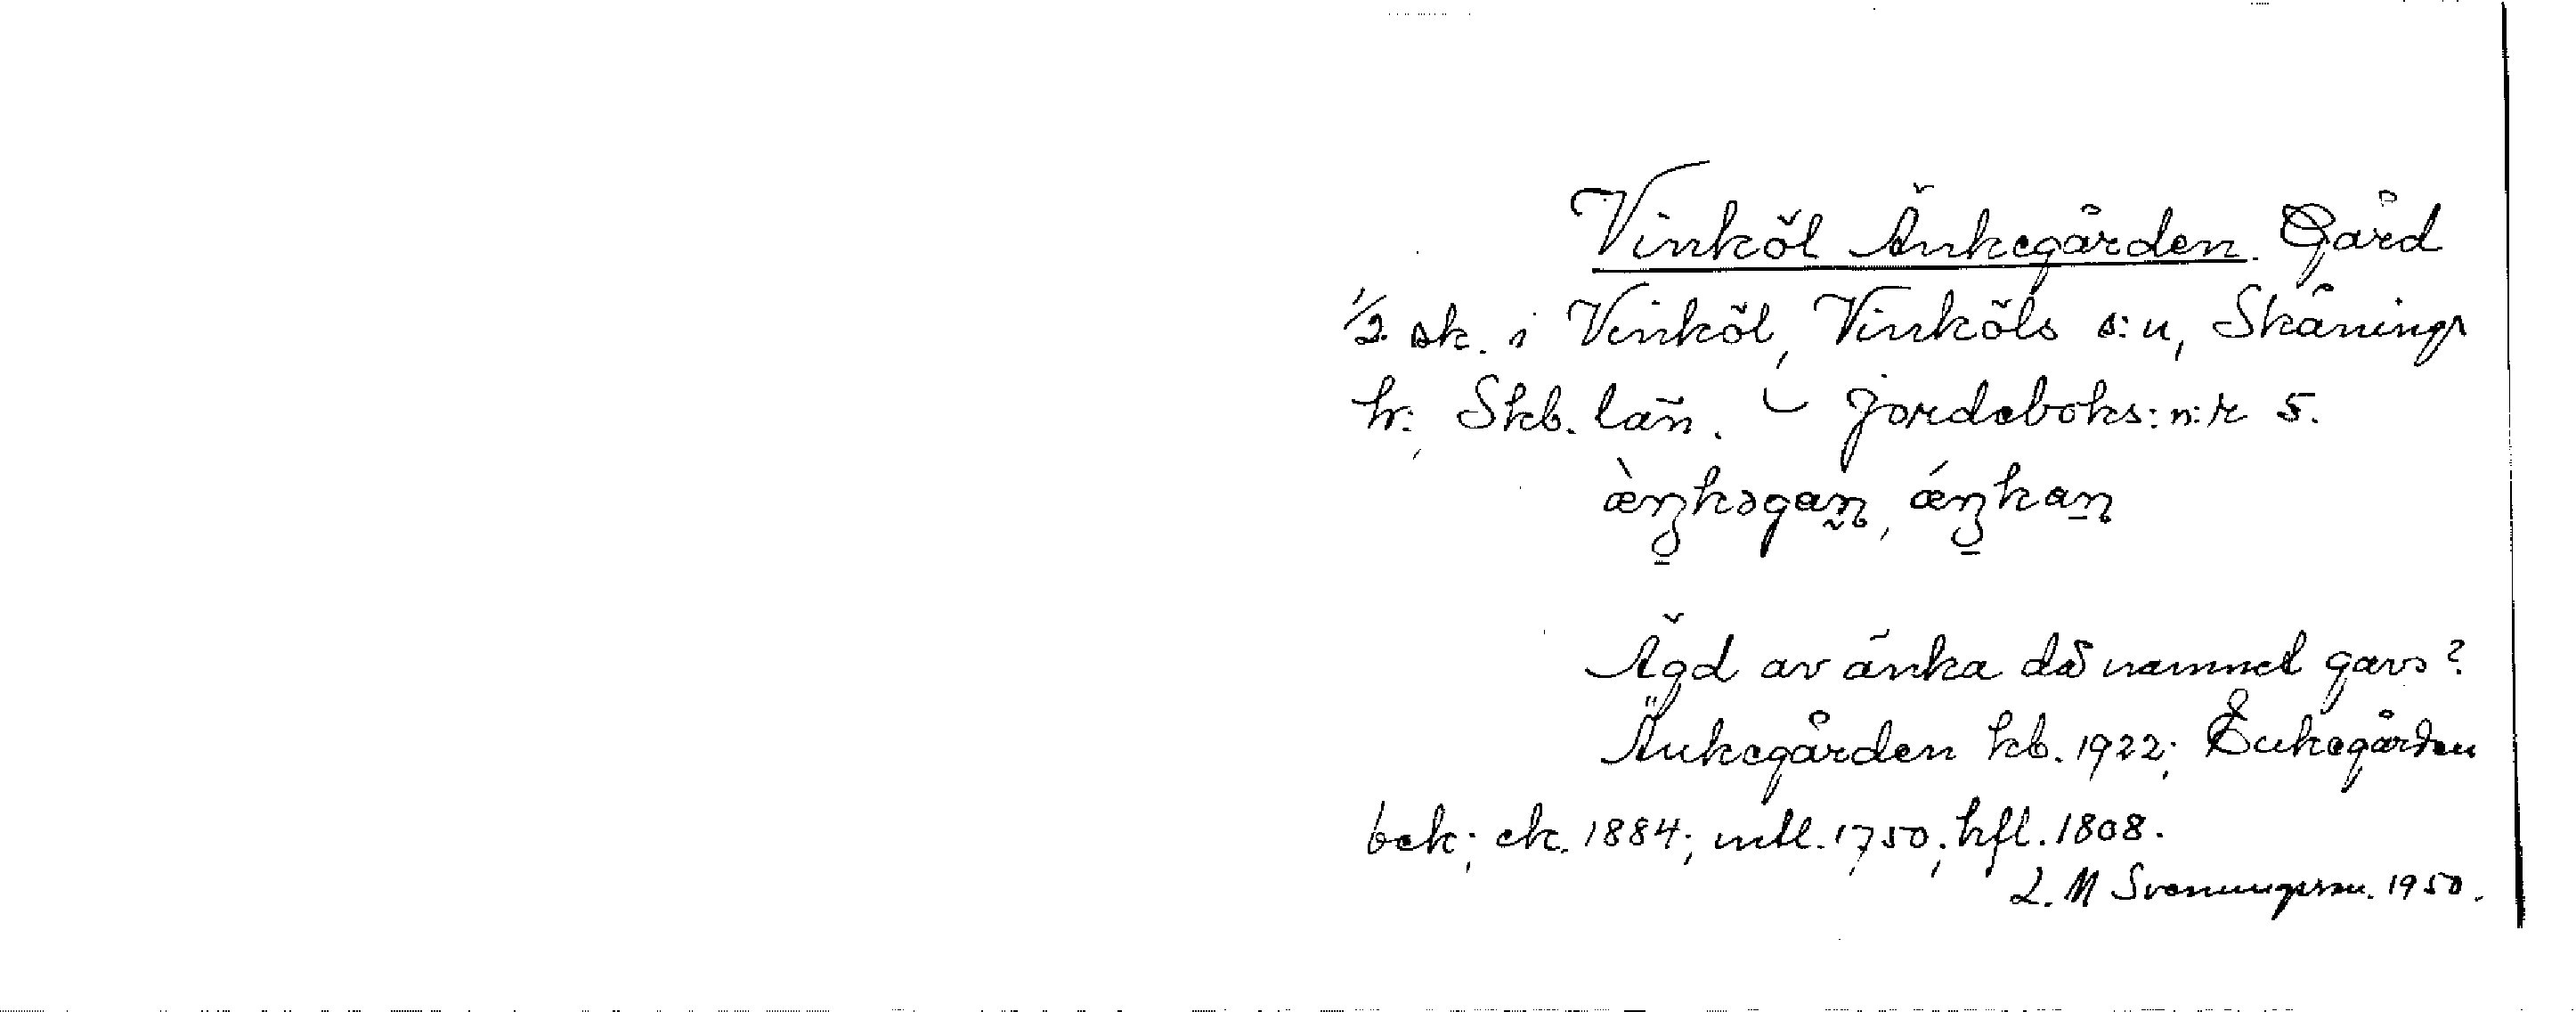 Vinköl Änkegården. Gård
1/2 sk. i Vinköl, Vinköls s:n, Skånings
hr., Skb. län. – Jordeboks:n:r 5.
æ̀ŋkəgaɳ, ǽŋkaɳ
Ägd av änka då namnet gavs?
Änkegården kb. 1922; Enkegården
bek; ek. 1884; mtl. 1750; hfl. 1808.
L. M Svenungsson. 1950.